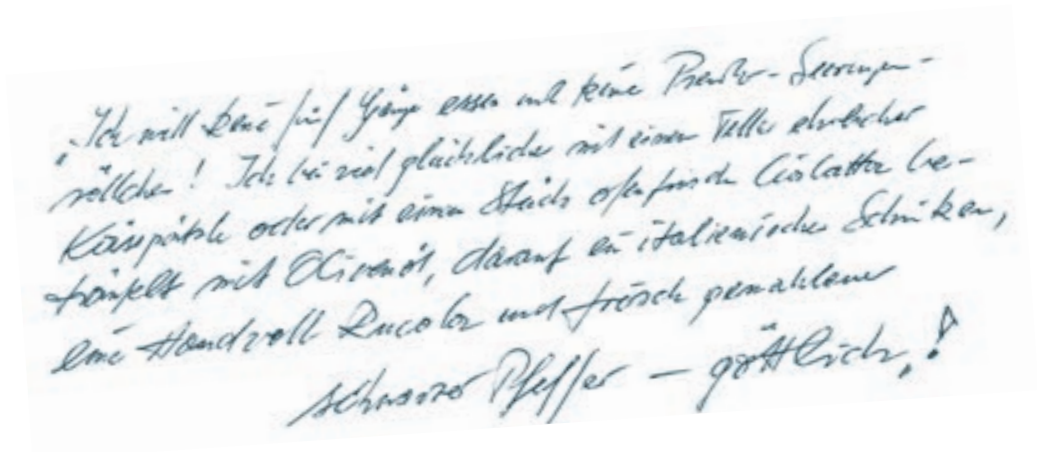 „Ich will keine fünf Gänge essen und keine - Seezungen-
röllchen! Ich bin viel glücklicher mit einem Teller ehrlicher
Kässpätzle oder mit einem Stück ofenfrisch Ciabatta be-
träufelt mit Olivenöl, darauf ein italienischer Schinken,
eine Handvoll Rucola und frisch gemahlener
schwarzer Pfeffer – göttlich„!